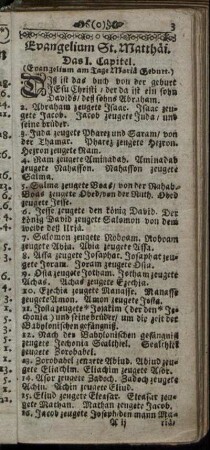 (o) 3
Evangelium St. Matthäi.
Das 1. Capitel.
(Evangelium am Tage Mariä Geburt.)
Diß ist das buch von der geburt
JEsu Christi / der da ist ein sohn
Davids / des sohns Abraham.
2. Abraham zeugete Isaac. Isaac zeu-
gete Jacob. Jacob zeugete Juda / und
seine brüder.
3. Juda zeugete Pharez und Saram / von
der Thamar. Pharez zeugete Hezron.
Hezron zeugete Ram.
4. Ram zeugete Aminadab. Aminadab
zeugete Nahasson. Nahasson zeugete
Salma.
5. Salma zeugete Boas / von der Rahab.
Boas zeugete Obed / von der Ruth. Obed
zeugete Jesse.
6. Jesse zeugete den könig David. Der
könig David zeugete Salomon von dem
weibe deß Uriä.
7. Salomon zeugete Roboam. Roboam
zeugete Abia. Abia zeugete Assa.
8. Assa zeugete Josaphat. Josaphat zeu-
gete Joram. Joram zeugete Osia.
9. Osia zeugete Jotham. Jotham zeugete
Achas. Achas zeugete Ezechia.
10. Ezechia zeugete Manasse. Manasse
zeugete Amon. Amon zeugete Josia.
11. Josia zeugete Jojakim (der den Jo-
chonia) und seine brüder / um die zeit der
Babylonischen gefängniß.
12. Nach der Babylonischen gefängniß
zeugete Jechonia Sealthiel. Sealthiel
zeugete Zorobabel.
13. Zorobabel zeugete Abiud. Abiud zeu-
gete Eliachim. Eliachim zeugete Asor.
14. Asor zeugete Zadoch. Zadoch zeugete
Achin. Achin zeugete Eliud.
15. Eliud zeugete Eleasar. Eleasar zeu-
gete Mathan. Mathan zeugete Jacob.
16. Jacob zeugete Joseph den mann Ma-
A ij riä /